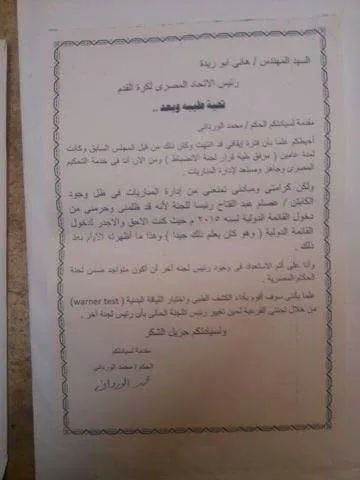 السيد المهندس / هاني ابو ريدة
رئيس الاتحاد المصرى لكرة القدم
تحية طيبه وبعد ..
مقدمة لسيادتكم الحكم / محمد الوردانى
أحيطكم علما بأن فترة إيقافي قد انتهت وكان ذلك من قبل المجلس السابق وكانت
لمدة عامين ( مرفق طيه قرار لجنة الانضباط ) ومن الان أنا في خدمة التحكيم
المصرى وجاهز ومستعد لإدارة المباريات .
ولكن كرامتي ومبادئى تمنعنى من إدارة المباريات فى ظل وجود
الكابتن / عصام عبد الفتاح رئيسا للجنة لأنه قد ظلمنى وحرمنى من
دخول القائمة الدولية لسنه ٢٠١٥ م حيث كنت الاحق والاجدر لدخول
القائمة الدولية ( وهو كان يعلم ذلك جيدا ) وهذا ما أظهرته الأيام بعد
ذلك .
وأنا على أتم الاستعداد فى وجود رئيس لجنه أخر أن أكون متواجد ضمن لجنة
الحكام المصرية .
علما بأننى سوف أقوم بأداء الكشف الطبي واختبار اللياقة البدنية ( warner test )
من خلال لجنتى الفرعية لحين تغيير رئيس اللجنة الحالى بأى رئيس لجنة أخر .
ولسيادتكم جزيل الشكر
مقدمة لسيادتكم
الحكم / محمد الوردانى
محمد الوردانى